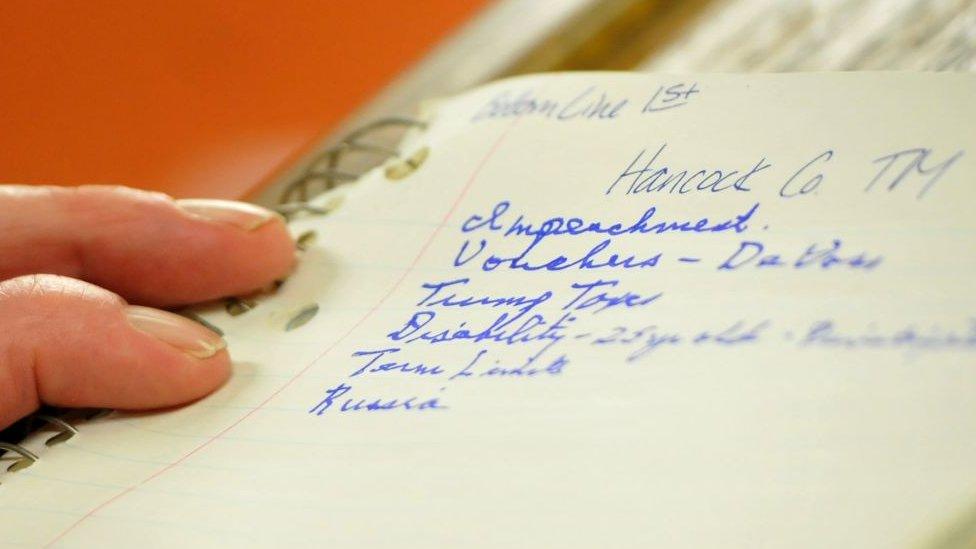 Line 1st
Hancock Co. TM
Impeachment.
Vouchers - DeVoss
Trump Taxes
Disability - 25 yr old -
Term Limits
Russia